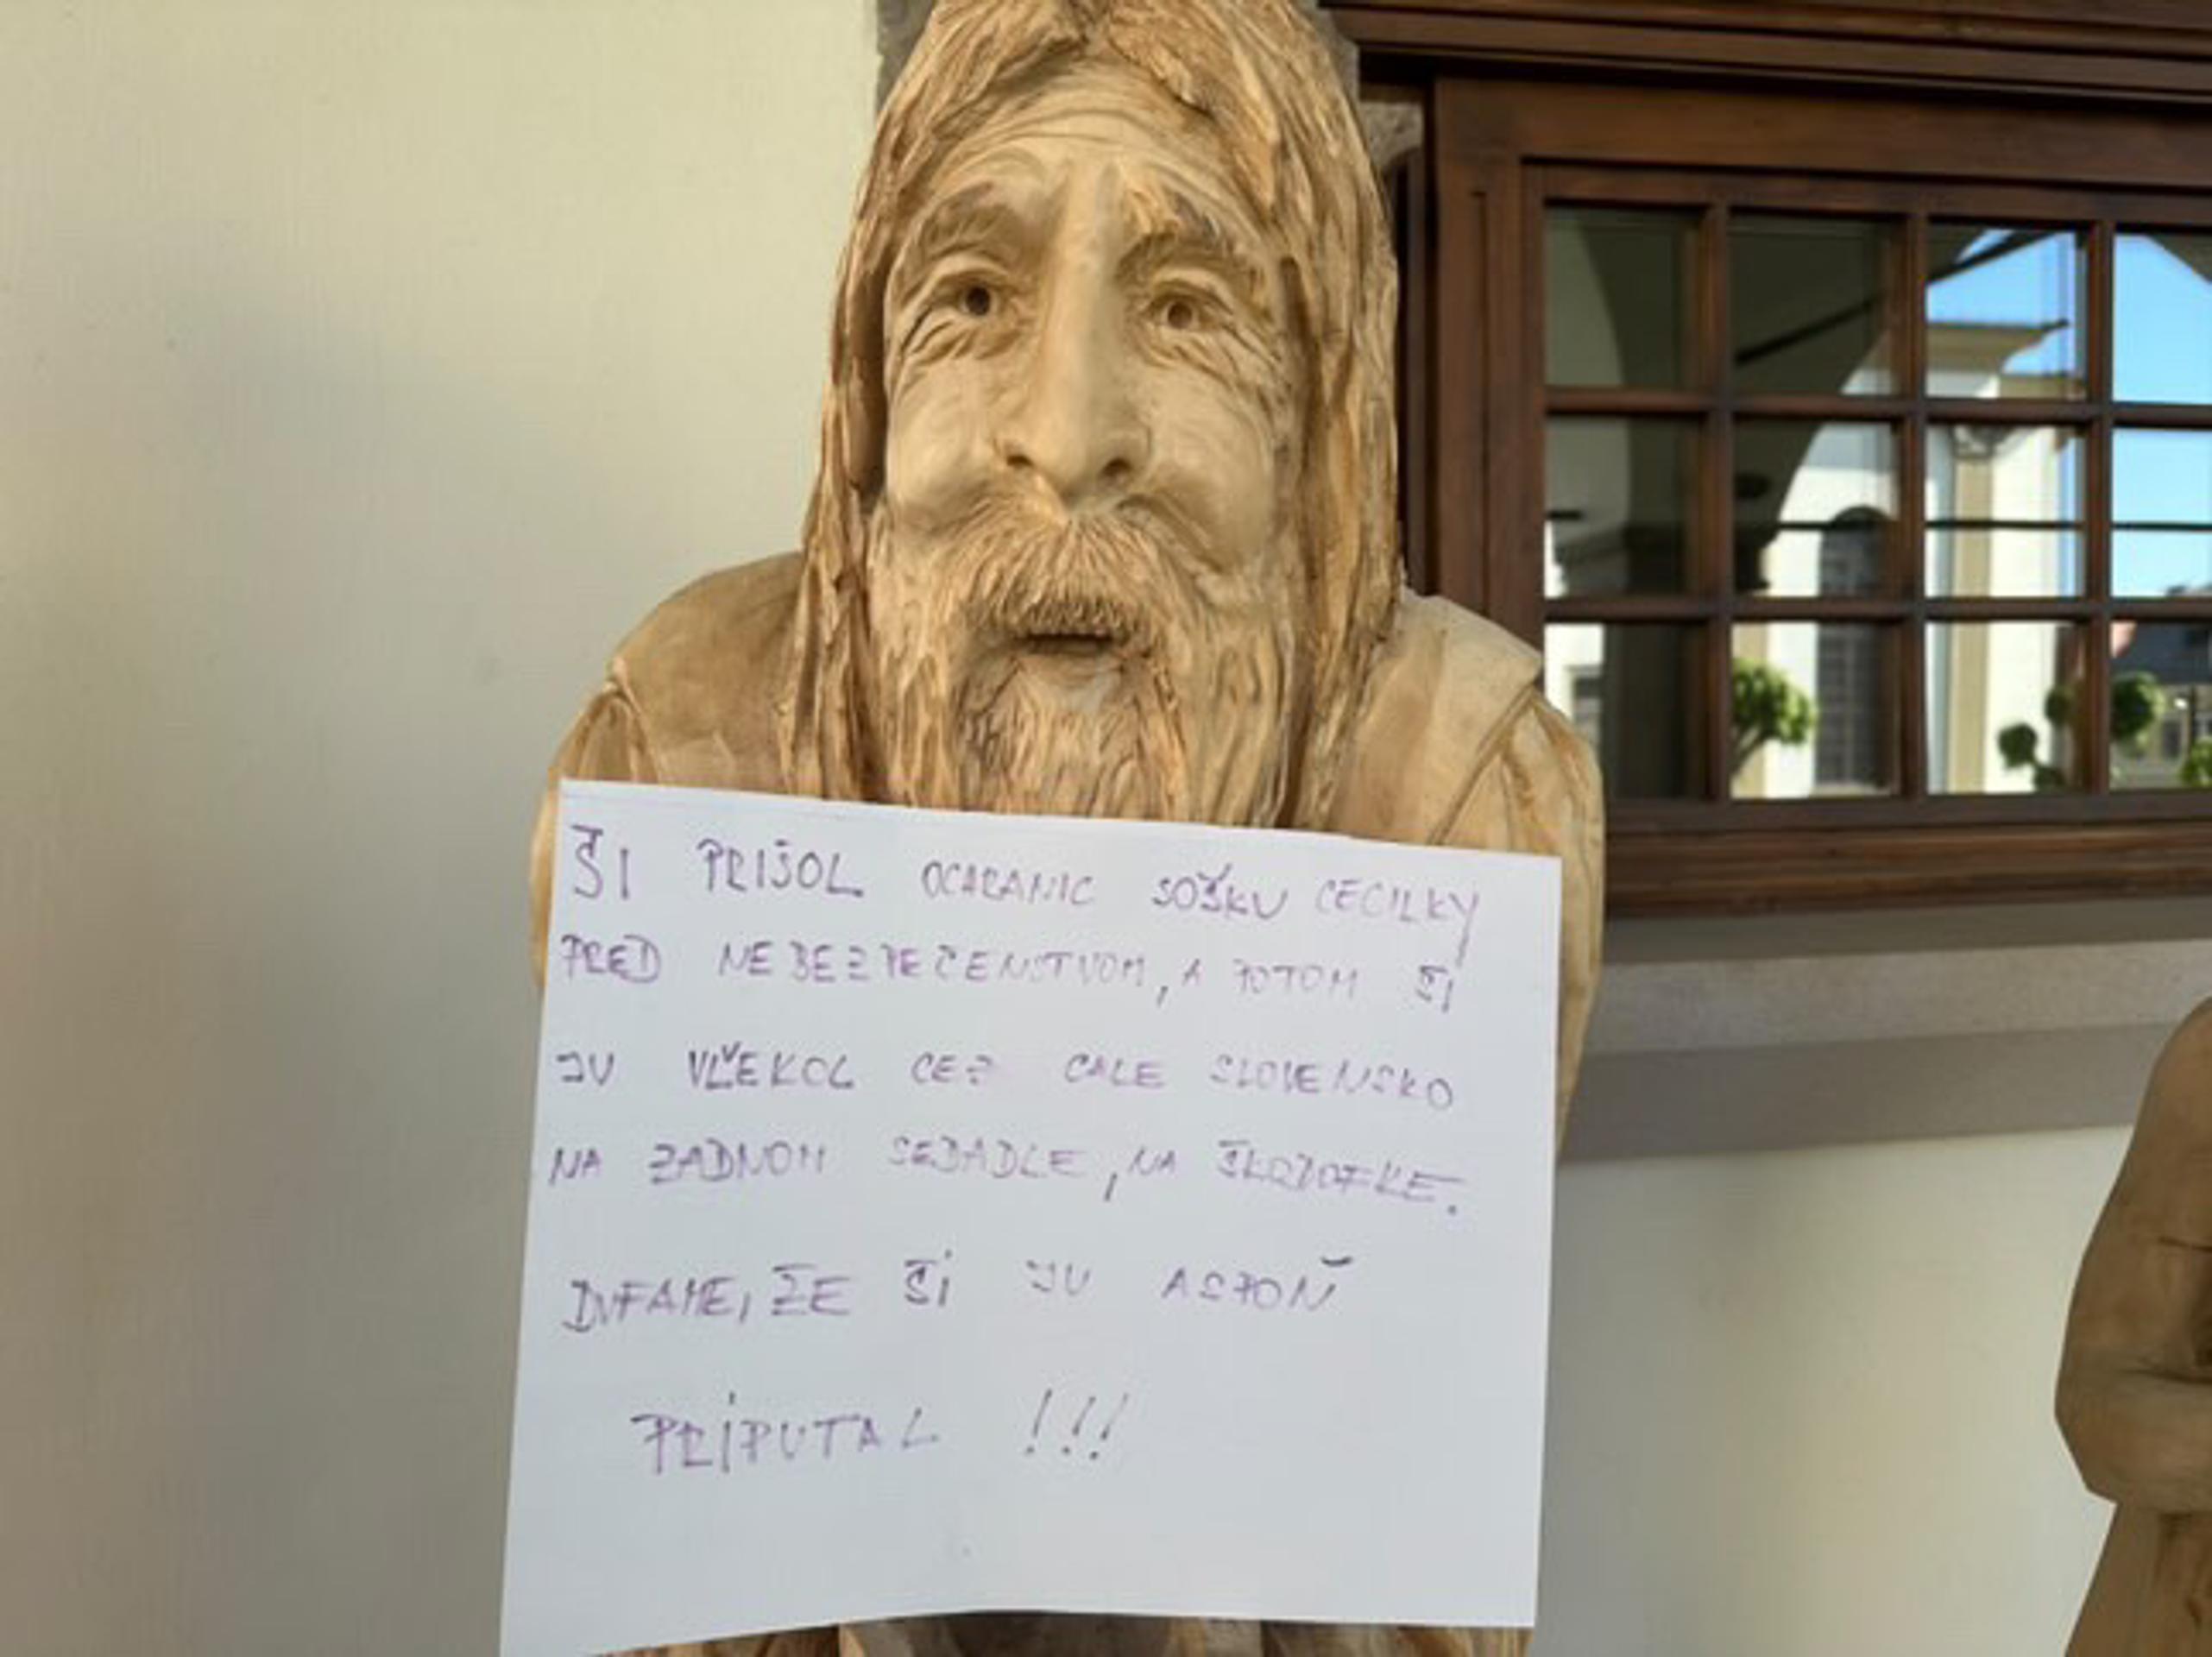 ŠI PRIŠOL OCHRANIC SOŠKU CECILKY
PRED NEBEZPEČENSTVOM, A POTOM ŠI
JU VLEKOL CEZ CALE SLOVENSKO
NA ZADNOM SEDADLE, NA ŠKODOFKE.
DUFAME, ŽE ŠI JU ASPOŇ
PRIPUTAL !!!